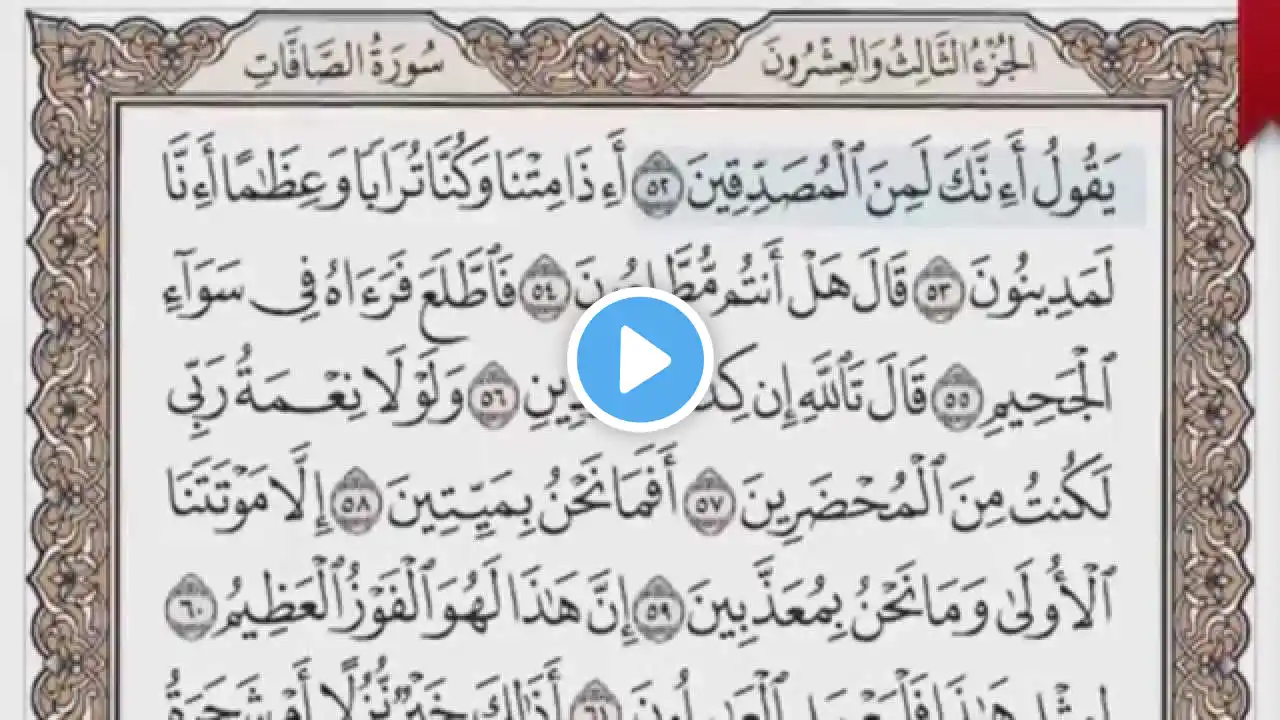 سُورَةُ الصَّافَّاتِ
الجُزْءُ الثَّالِثُ وَالعِشْرُونَ
يَقُولُ أَءِنَّكَ لَمِنَ ٱلْمُصَدِّقِينَ ٥٢ أَءِذَا مِتْنَا وَكُنَّا تُرَابًا وَعِظَٰمًا أَءِنَّا
لَمَدِينُونَ ٥٣ قَالَ هَلْ أَنتُم ٥٤ فَٱطَّلَعَ فَرَءَاهُ فِى سَوَآءِ
ٱلْجَحِيمِ ٥٥ قَالَ تَٱللَّهِ إِن ٥٦ وَلَوْلَا نِعْمَةُ رَبِّى
لَكُنتُ مِنَ ٱلْمُحْضَرِينَ ٥٧ أَفَمَا نَحْنُ بِمَيِّتِينَ ٥٨ إِلَّا مَوْتَتَنَا
ٱلْأُولَىٰ وَمَا نَحْنُ بِمُعَذَّبِينَ ٥٩ إِنَّ هَٰذَا لَهُوَ ٱلْفَوْزُ ٱلْعَظِيمُ ٦٠
هَٰذَا ٦١ أَذَٰلِكَ خَيْرٌ نُّزُلًا أَمْ شَجَرَةُ